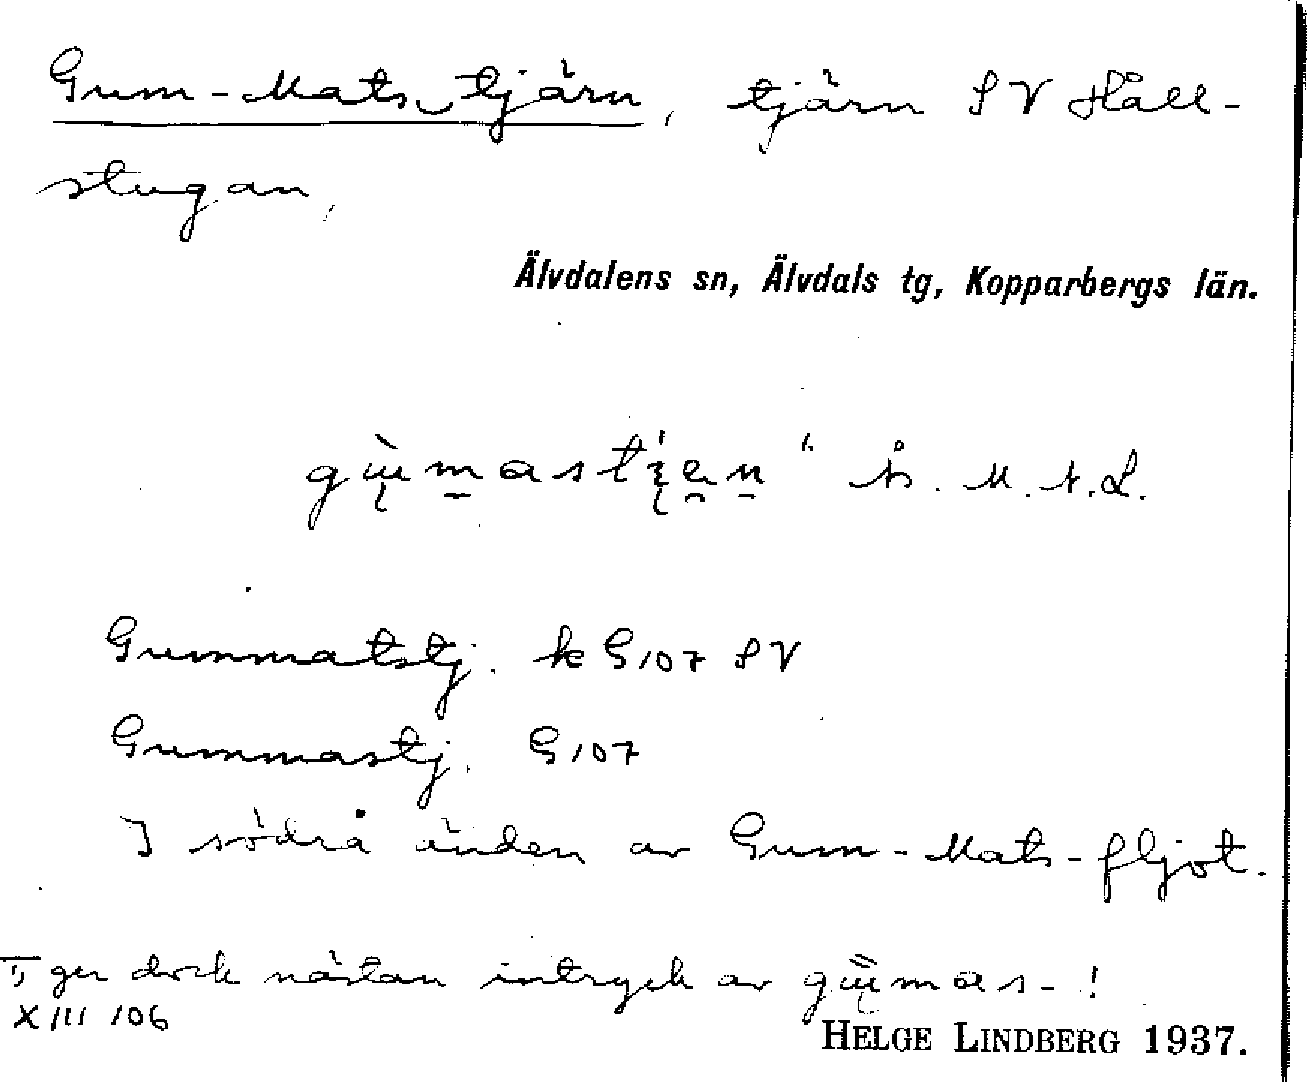 Gum-Mats tjärn, tjärn SV Håll-
stugan,
Älvdalens sn, Älvdals tg, Kopparbergs län.
Gummatstj. k G107 SV
Gummastj. G107
I södra änden av Gum-Mats-fljot.
ger dock nästan intryck av
XIII 106
HELGE LINDBERG 1937.